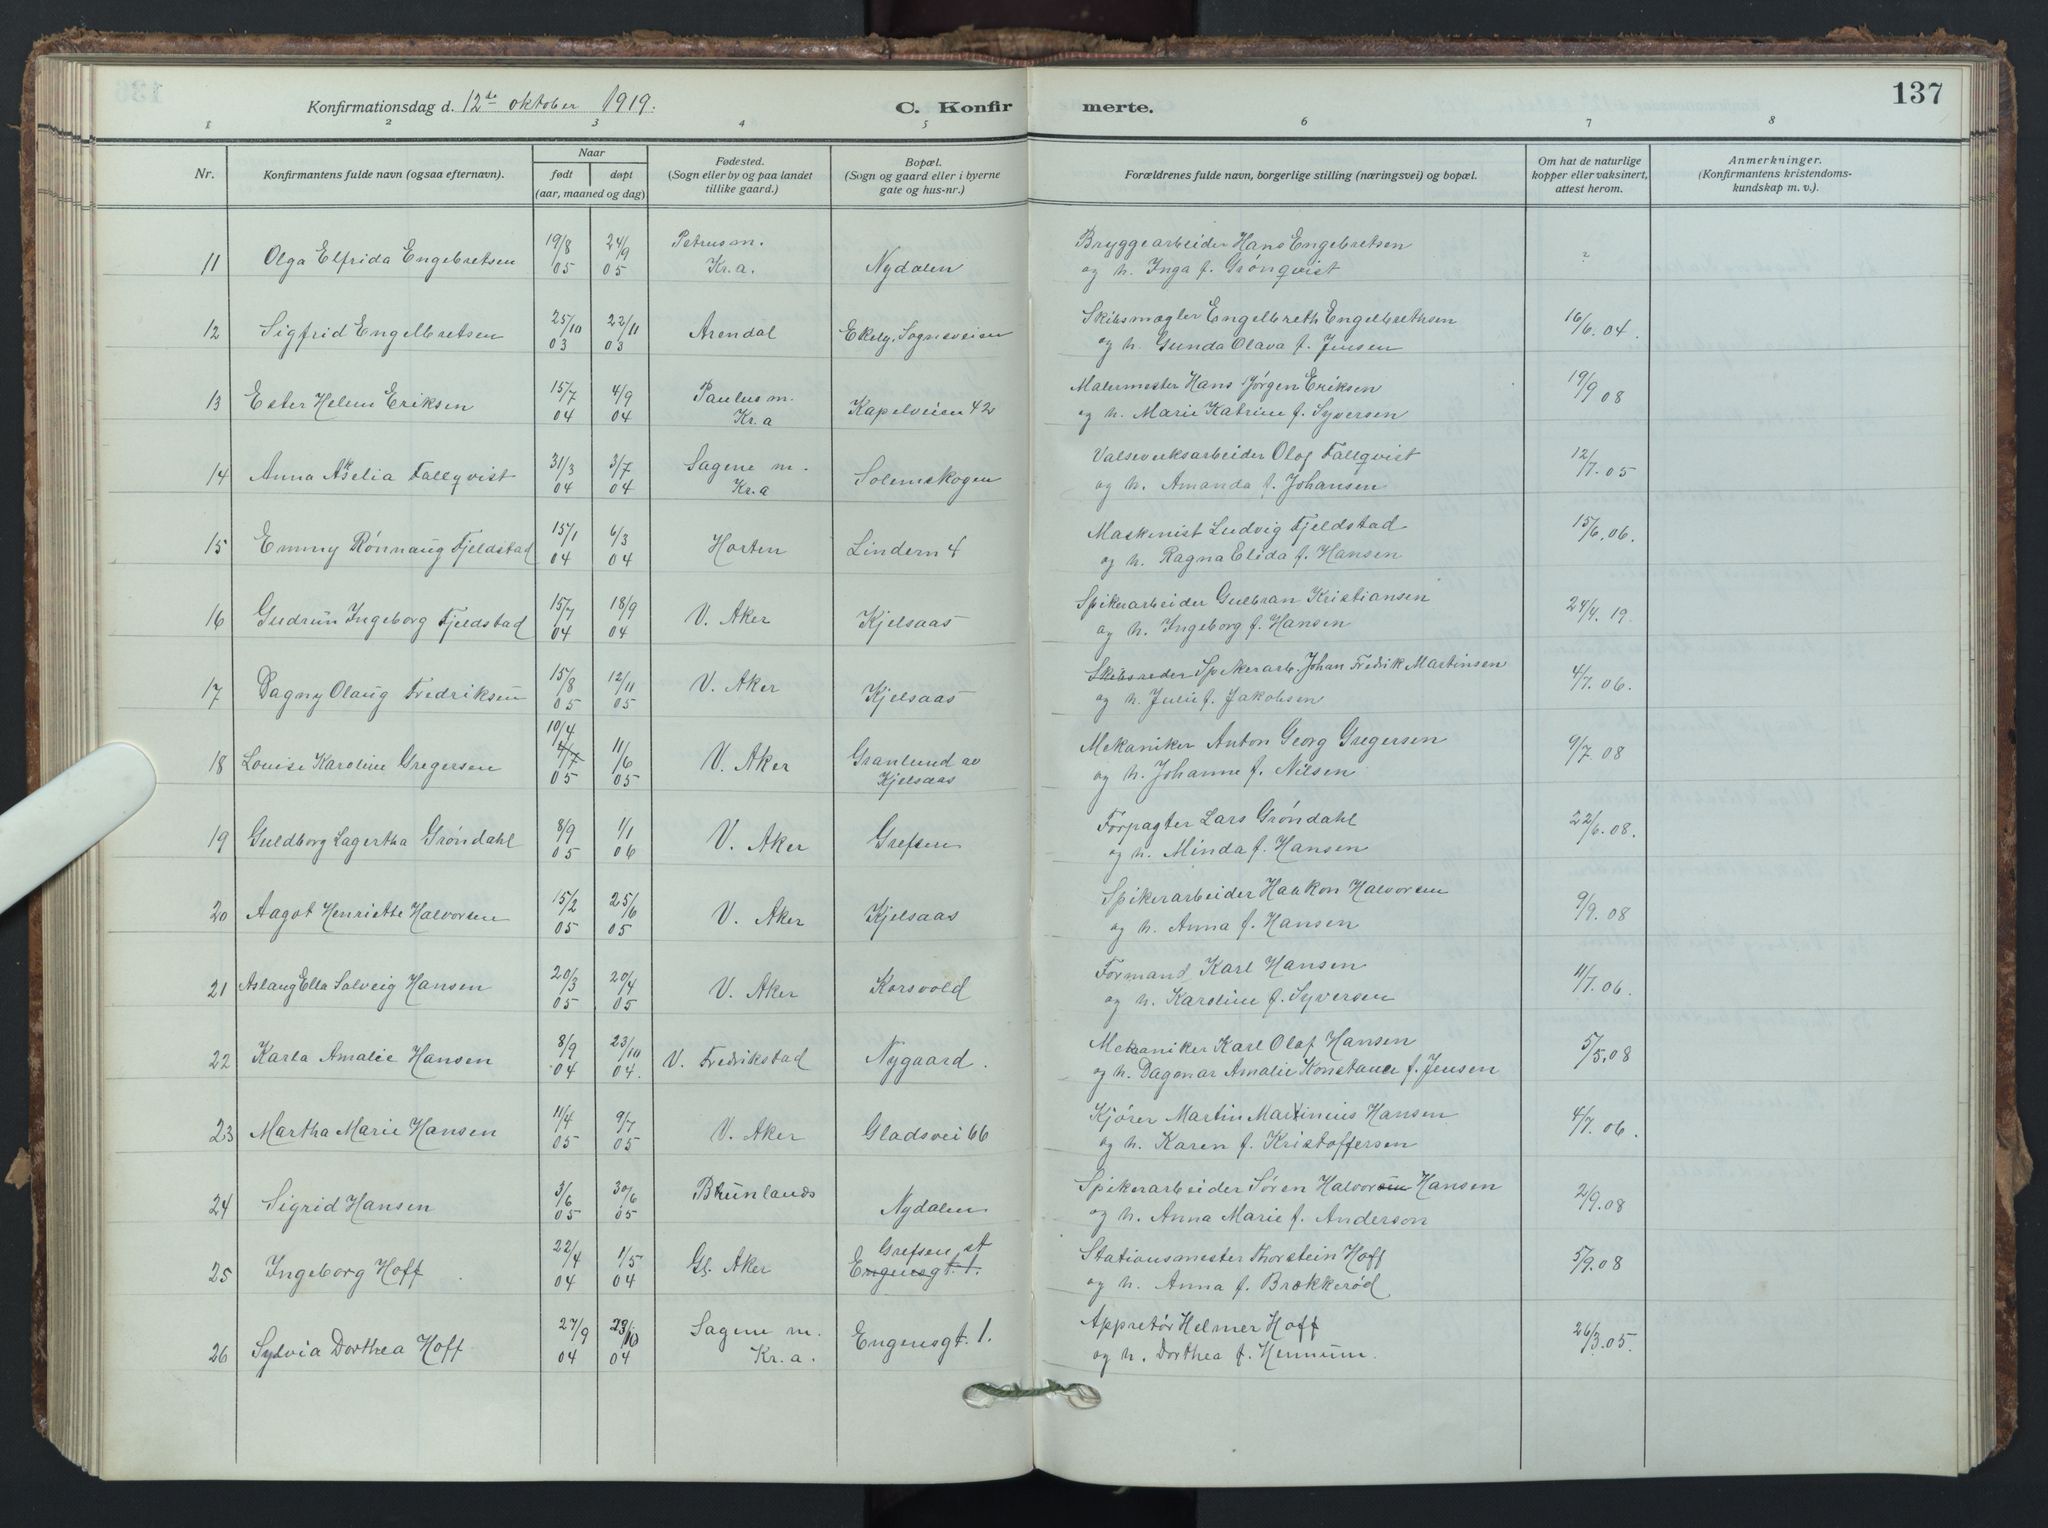 137
Konfirmationsdag d. 12de oktober 1919.
C. Konfir merte.
1 2 3 4 5 6 7 8
Nr.
Konfirmantens fulde navn (ogsaa efternavn).
Naar
født døpt
(aar, maaned og dag)
Fødested.
(Sogn eller by og paa landet
tillike gaard.)
Bopæl.
(Sogn og gaard eller i byerne
gate og hus-nr.)
Forældrenes fulde navn, borgerlige stilling (næringsvei) og bopæl.
Om hat de naturlige
kopper eller vaksinert,
attest herom.
Anmerkninger.
(Konfirmantens kristendoms-
kundskap m. v.).
11 Olga Elfrida Engebretsen 19/8 05 24/9 05 Petrus m. Kr.a. Nydalen Bryggearbeider Hans Engebretsen ?
og h. Inga f. Grönqvist
12 Sigfrid Engelbretsen 25/10 03 22/11 03 Arendal Ekely, Sognsveien Skibsmægler Engelbreth Engelbrethsen 16/6. 04
og h. Gunda Olava f. Jensen
13 Ester Helene Eriksen 15/7 04 4/9 04 Paulus m. Kr.a Kapelveien 42 Malermester Hans Jørgen Eriksen 19/9 08
og h. Marie Katrine f. Syversen
14 Anna Aselia Fallqvist 31/3 04 3/7 04 Sagene m. Kr.a Solemskogen Valseverksarbeider Olof Fallqvist 12/7. 05
og h. Amanda f. Johansen
15 Emmy Rönnaug Fjeldstad 15/1 04 6/3 04 Horten Lindern 4 Maskinist Ludvig Fjeldstad 15/6. 06.
og h. Ragna Elida f. Hansen
16 Gudrun Ingeborg Fjeldstad 15/7 04 18/9 04 V. Aker Kjelsaas Spikerarbeider Gulbran Kristiansen 24/4. 19.
og h. Ingeborg f. Hansen
17 Dagny Olaug Fredriksen 15/8 05 12/11 05 V. Aker Kjelsaas Skibsreder Spikerarb. Johan Fredrik Martinsen 4/7. 06.
og h. Julie f. Jakobsen
18 Louise Karoline Gregersen 10/4 4/7 05 11/6 05 V. Aker Granlund av Kjelsaas Mekaniker Anton Georg Gregersen 9/7 08
og h. Johanne f. Nilsen
19 Guldborg Lagertha Gröndahl 8/9 05 1/1 06 V. Aker Grefsen Forpagter Lars Gröndahl 22/6. 08.
og h. Minda f. Hansen
20 Aagot Henriette Halvorsen 15/2 05 25/6 05 V. Aker Kjelsaas Spikerarbeider Haakon Halvorsen 9/9. 08
og h. Anna f. Hansen
21 Aslaug Ella Solveig Hansen 20/3 05 20/4 05 V. Aker Korsvold Formand Karl Hansen 11/7. 06.
og h. Karoline f. Syversen
22 Karla Amalie Hansen 8/9 04 23/10 04. V. Fredrikstad Nygaard. Mekaniker Karl Olaf Hansen 5/5.08
og h. Dagmar Amalie Konstance f. Jensen
23 Martha Marie Hansen 11/4 05 9/7 05 V. Aker Gladsvei 66 Kjörer Martin Martinius Hansen 4/7. 06.
og h. Karen f. Kristoffersen
24 Sigrid Hansen 3/6 05 30/6 05 Brunlands Nydalen Spikerarbeider Sören Halvorsen Hansen 2/9.08
og h. Anna Marie f. Anderson
25 Ingeborg Hoff 22/4 04 1/5 04 Gl. Aker Grefsen st Engensgt. 1. Stationsmester Thorstein Hoff 5/9.08
og h. Anna f. Brækkeröd
26 Sylvia Dorthea Hoff 27/9 04 23/10 04 Sagene m. Kr.a. Engensgt. 1. Appretör Helmer Hoff 26/3.05.
og h. Dorthea f. Hennum.